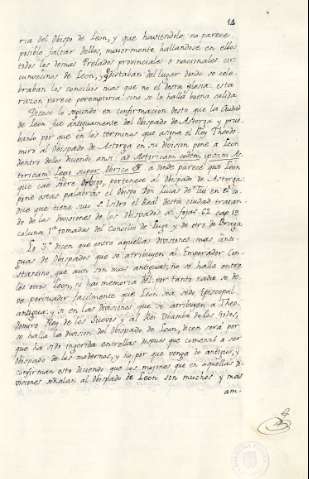 ria del Obispo de Leon, y que haviendole, no parece
posible faltar dellos, mayormente hallandose en ellos
todos los demas Prelados provinciales o nacionales cir
cunvecinos de Leon, y distaban del lugar donde se cele
braban los concilios mas que no el desta iglesia. esta
razon parece peremptoria sino se le halla buena salida.
lo segundo en confirmacion desto que la Ciudad
de Leon fue antiguamente del Obispado de Astorga y prue
banlo por que en los terminos que asigna el Rey Theodo
miro al Obispado de Astorga en su division pone a Leon
dentro dellos diciendo ansi:
super Berico
que cae sobre Obispo, pertenece al Obispado de Astorga
pone estas palabras el obispo Don Lucas de Tui en el
que que tiene suio el Real desta ciudad tratan
do de las divisiones de los Obispados a fojas 62 cap 19
coluna 1ª tomadas del concilio de Lugo y de otro de Braga
Lo 3º dicen que entre aquellas divisiones mas anti
guas de Obispados que se atribuyen al Emperador Con
stantino, que aun son mas antiguas, no se halla entre
los otros Leon, ni hai memoria del por tanto nadie se de
ve persuadir facilmente que Leon sea sede Episcopal
antigua; y si en las divisiones que se atribuyen a Theo
domiro Rey de los Suevos y al Rei Wamba de los Godos,
se halla la division del Obispado de Leon, dicen será por
que ha sido ingerida entrellas despues que comenzó a ser
Obispado de los modernos, y no por que venga de antiguo, y
confirman esto diciendo que las mojones que en aquellas di
visiones señalan al Obispado de Leon son muchos y mas
am-